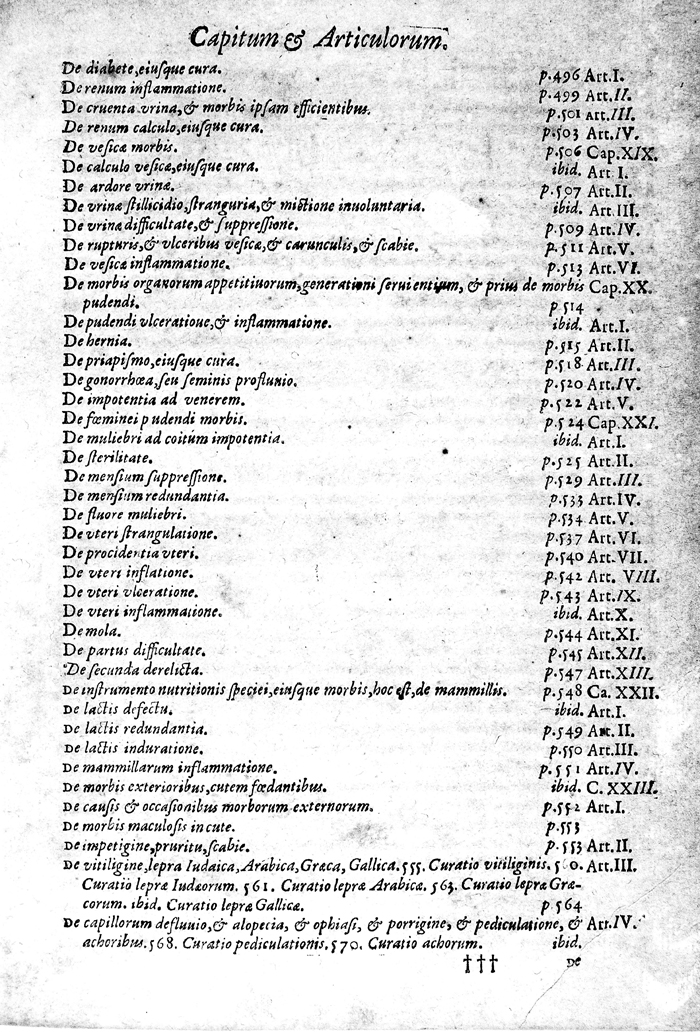 Capitum & Articulorum.
De diabete, eiuſque cura. p.496 Art.I.
De renum inflammatione. p.499 Art.II.
De cruenta vrina, & morbis ipſam efficientibus. p.501 Art.III.
De renum calculo, eiuſque cura. p.503 Art.IV.
De veſicæ morbis. p.506 Cap.XIX.
De calculo veſicæ, eiuſque cura. ibid. Art.I.
De ardore vrinæ. p.507 Art.II.
De vrinæ ſtillicidio, ſtranguria, & mictione inuoluntaria. ibid. Art.III.
De vrinæ difficultate, & ſuppreſſione. p.509 Art.IV.
De rupturis, & vlceribus veſicæ, & carunculis, & ſcabie. p.511 Art.V.
De veſicæ inflammatione. p.513 Art.VI.
De morbis organorum appetitiuorum, generationi ſeruientium, & prius de morbis Cap.XX.
pudendi. p 514
De pudendi vlceratioue, & inflammatione. ibid. Art.I.
De hernia. p.515 Art.II.
De priapiſmo, eiuſque cura. p.518 Art.III.
De gonorrhœa, ſeu ſeminis profluuio. p.520 Art.IV.
De impotentia ad venerem. p.522 Art.V.
De fœminei pudendi morbis. p.524 Cap.XXI.
De muliebri ad coitum impotentia. ibid. Art.I.
De ſterilitate. p.525 Art.II.
De menſium ſuppreſſione. p.529 Art.III.
De menſium redundantia. p.533 Art.IV.
De fluore muliebri. p.534 Art.V.
De vteri ſtrangulatione. p.537 Art.VI.
De procidentia vteri. p.540 Art.VII.
De vteri inflatione. p.542 Art. VIII.
De vteri vlceratione. p.543 Art.IX.
De vteri inflammatione. ibid. Art.X.
De mola. p.544 Art.XI.
De partus difficultate. p.545 Art.XII.
De ſecunda derelicta. p.547 Art.XIII.
De inſtrumento nutritionis ſpeciei, eiuſque morbis, hoc eſt, de mammillis. p.548 Ca. XXII.
De lactis defectu. ibid. Art.I.
De lactis redundantia. p.549 Art.II.
De lactis induratione. p.550 Art.III.
De mammillarum inflammatione. p.551 Art.IV.
De morbis exterioribus, cutem fœdantibus. ibid. C. XXIII.
De cauſis & occaſionibus morborum externorum. p.552 Art.I.
De morbis maculoſis in cute. p.553
De impetigine, pruritu, ſcabie. p.553 Art.II.
De vitiligine, lepra Iudaica, Arabica, Græca, Gallica. 555. Curatio vitiliginis. 560. Art.III.
Curatio lepræ Iudæorum. 561. Curatio lepræ Arabicæ. 563. Curatio lepræ Græ-
corum. ibid. Curatio lepræ Gallicæ. p 564
De capillorum defluuio, & alopecia, & ophiaſi, & porrigine, & pediculatione, & Art.IV.
achoribus. 568. Curatio pediculationis. 570. Curatio achorum. ibid.
††† De